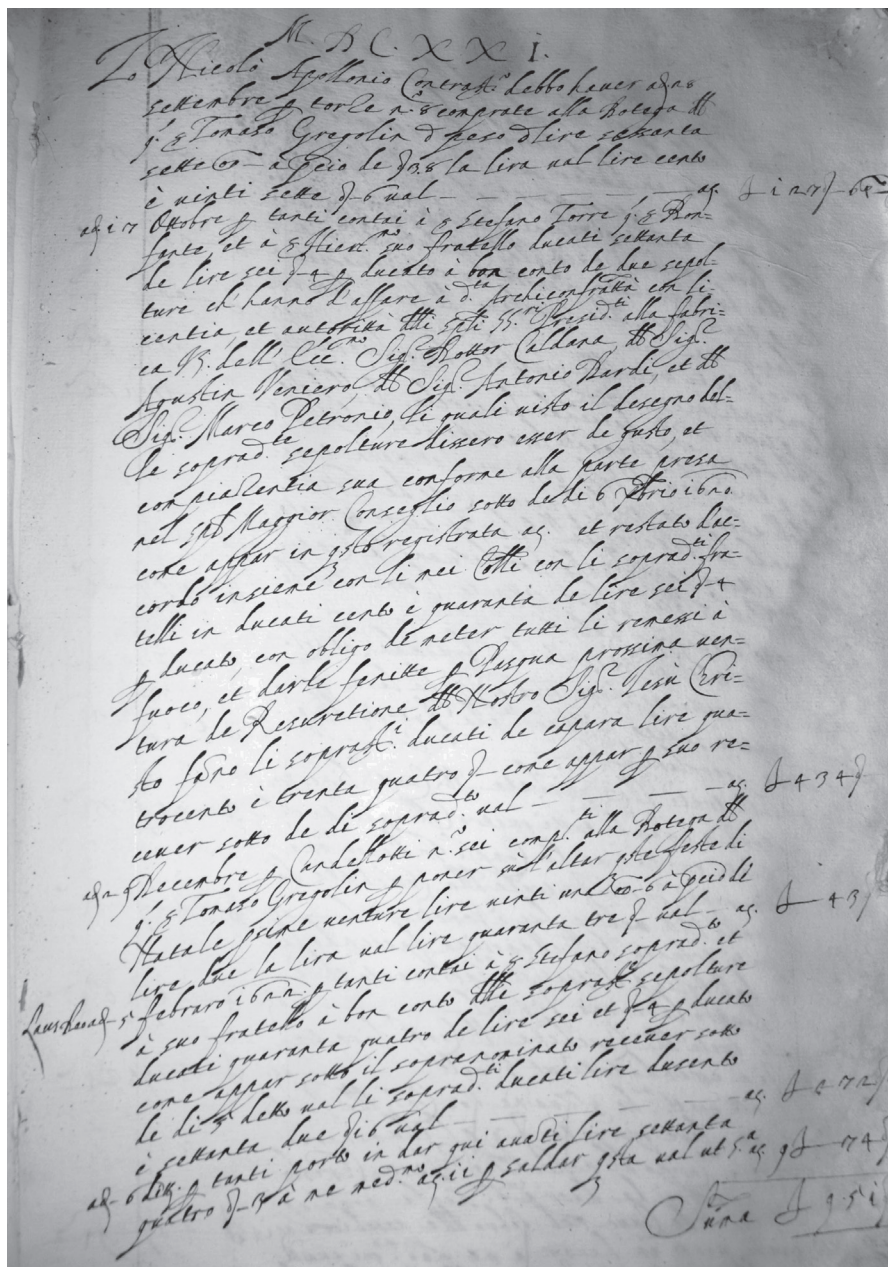 M. D C. X X I.
Io Nicolò Apollonio Contrasti debbo haver adi 28
settembre p torze n.º 8 comprate alla Botega dll
q. ser Tomaso Gregolin d peso d lire sessanta
sette a pcio de 38 la lira val lire cento
è vinti sette 6 val — — — — — ac. 127 6
adi 17 Ottobre p tanti contai à ser Stefano Torre q. ser Bon=
fante, et à ser Hier.mo suo fratello ducati settanta
de lire sei 4 p ducato à bon conto de due sepol=
ture ch' hanno d'affare à d.ta Archiconfrattà con li=
centia, et autorittà dlli Spli SS.ri Presid.ti alla fabri=
ca V3. dell' Ecc.mo Sig.r Dottor Caldana, dll Sig.r
Agustin Veniero, dll Sig.r Antonio Bardi, et dll
Sig.r Marco Petronio, li quali visto il desegno del=
le soprad.te sepolture dissero esser de gusto, et
compiacentia sua conforme alla parte presa
nel Spl Maggior Conseglio sotto de di 6
come appar in qsto registrata ac. et restato d'ac=
cordo insieme con li mei Colli con li soprad.ti fra=
telli in ducati cento è quaranta de lire sei 4
p ducato, con obligo de meter tutti li remessi à
fuoco, et darle fenitte p Pasqua prossima ven=
tura de Resuretione dll Nostro Sig.r Iesù Cri=
sto fano li soprast.i ducati de capara lire qua=
trocento è trenta quatro come appar p suo re=
cever sotto de di soprad.to val — — — — ac. 434
Decembre p Candellotti n.º sei comp.ti alla Botega dll
q. ser Tomaso Gregolin p poner sù l'altar qste feste di
Natale psime venture lire vinti una 6 à pcio di
lire due la lira val lire quaranta tre val — ac. 43
Laus Deo adi 5 febraro 1622 p tanti contai à ser Stefano soprad.to et
à suo fratello à bon conto dlle soprast.e sepolture
ducati quaranta quatro de lire sei et 4 p ducato
come appar sotto il sopranominato recever sotto
de di 5 detto val li soprad.ti ducati lire dusento
è settanta due 16 val — — — — ac. 272
adi 6 ditto p tanti porto in dar qui avanti lire settanta
quatro 3 à me med.mo ac. 11 p saldar qsta val ut S.a ac. 9 74
Suma 951